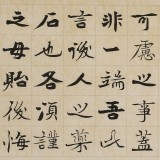 可慮之事蓋
非一端吾此
言後人之藥
石也各須謹
之毋貽後悔